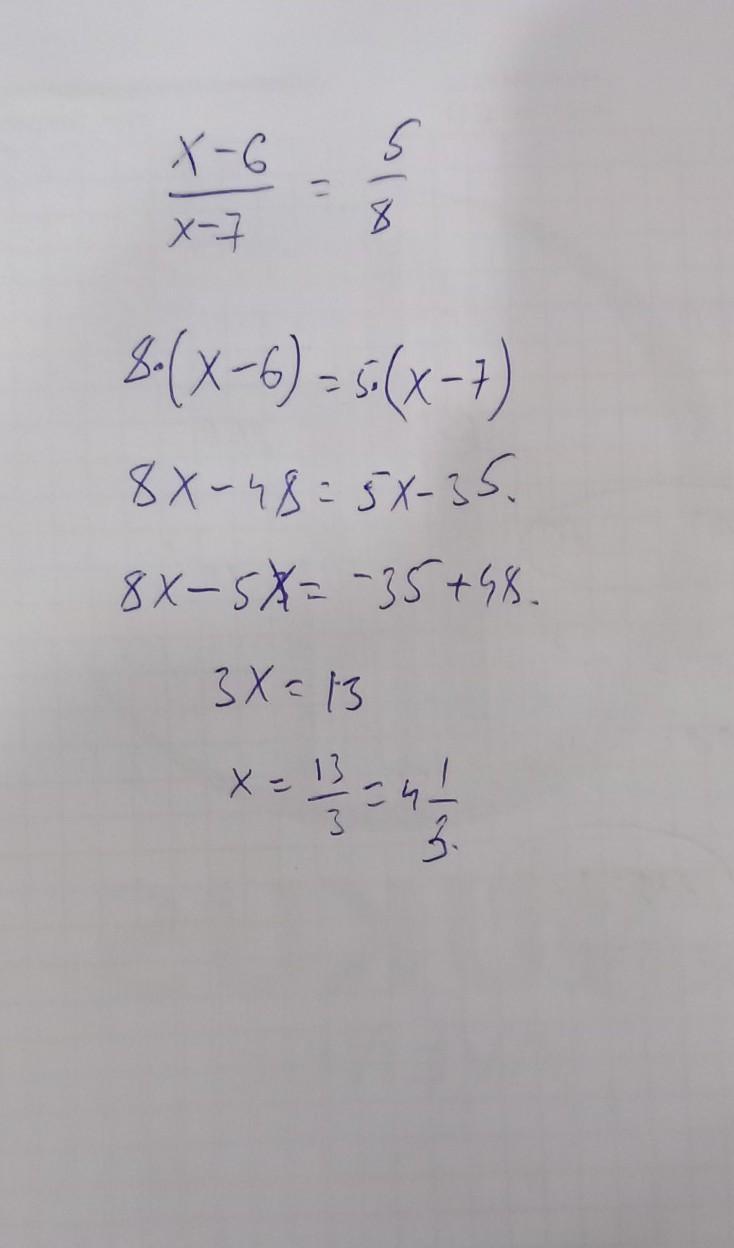 x-6/x-7 = 5/8
8·(x-6)=5·(x-7)
8x-48=5x-35.
8x-5x=-35+48.
3x=13
x=13/3=4 1/3.